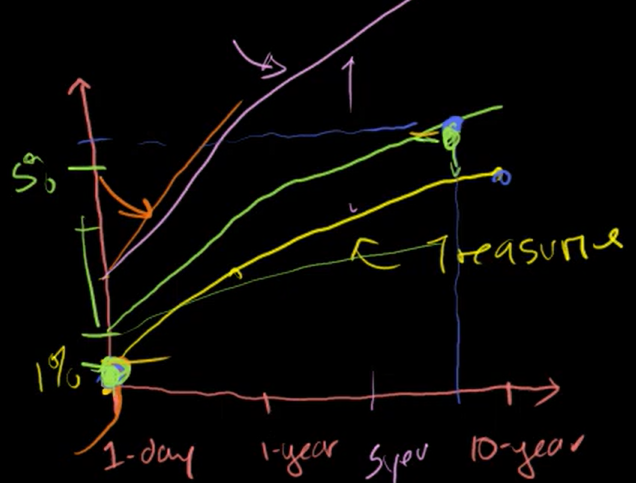 5%
Treasuries
1%
1-day 1-year 5yea 10-year